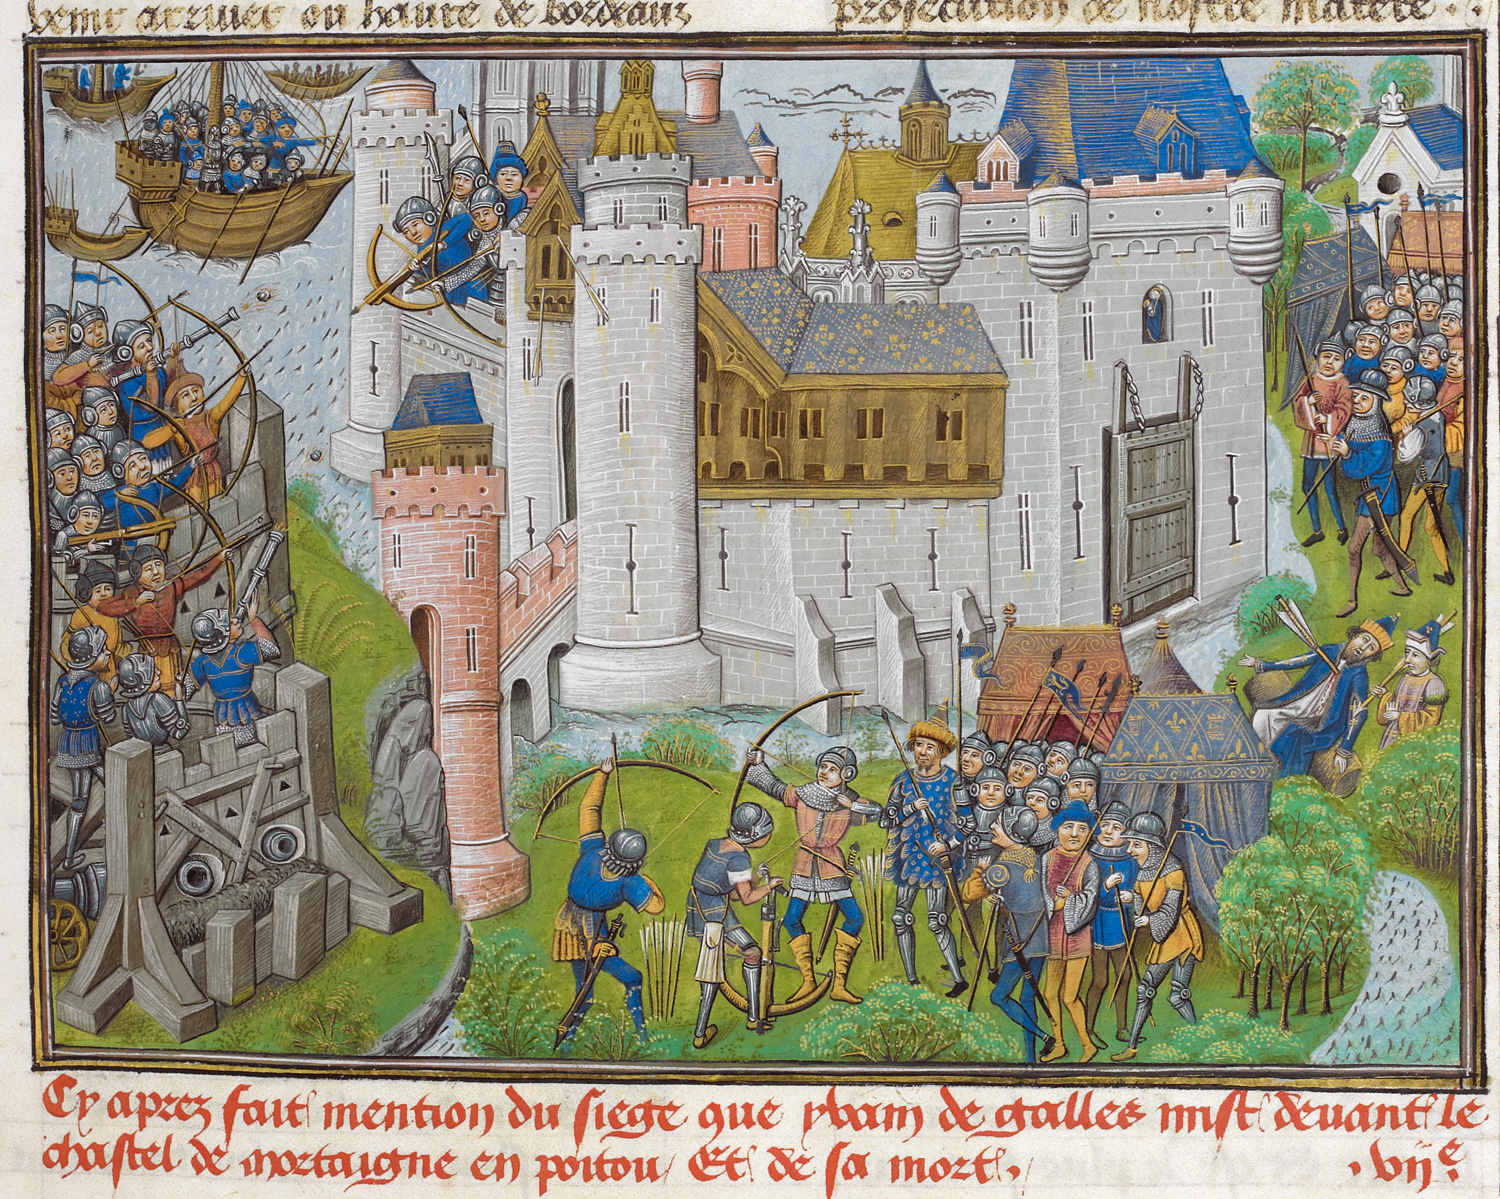 venir arriver ou havre de bordeaux
prosecution de nostre matere .
Cy aprez fait mention du siege que yvain de galles mist devant le
chastel de mortaigne en poitou / Et de sa mort . . vije .